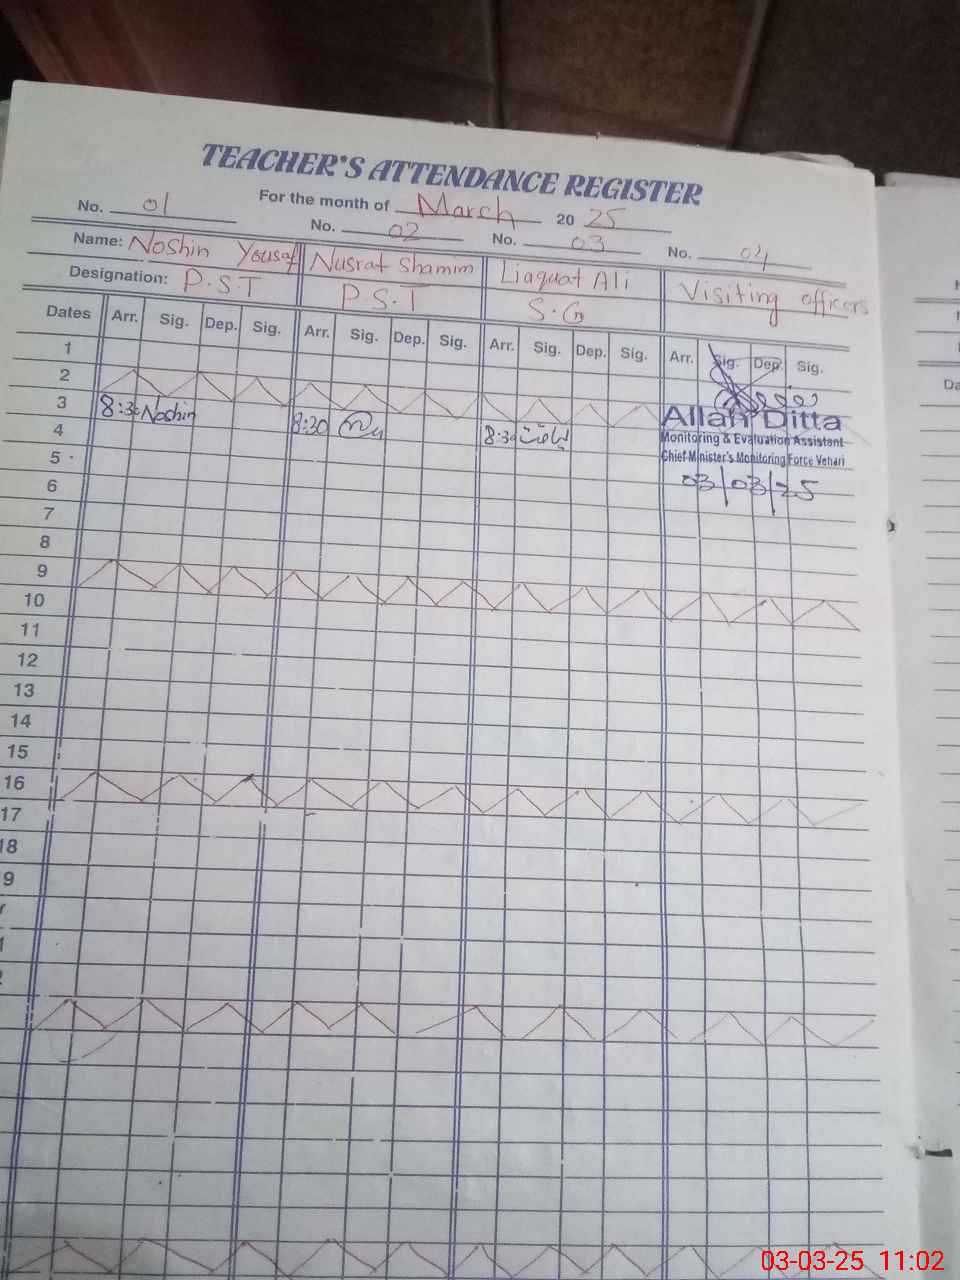 TEACHER'S ATTENDANCE REGISTER
For the month of March 20 25
No. 01 No. 02 No. 03 No. 04
Name: Noshin Yousaf Nusrat Shamim Liaquat Ali Visiting officers
Designation: P.S.T P.S.T S.G
Dates Arr. Sig. Dep. Sig. Arr. Sig. Dep. Sig. Arr. Sig. Dep. Sig. Arr. Sig. Dep. Sig.
1
2
3 8:30 Noshin 8:30 8:30 لیاقت
Allah Ditta
4
Monitoring & Evaluation Assistant
5
Chief Minister's Monitoring Force Vehari
03/03/25
6
7
8
9
10
11
12
13
14
15
16
17
18
9
Da
03-03-25 11:02